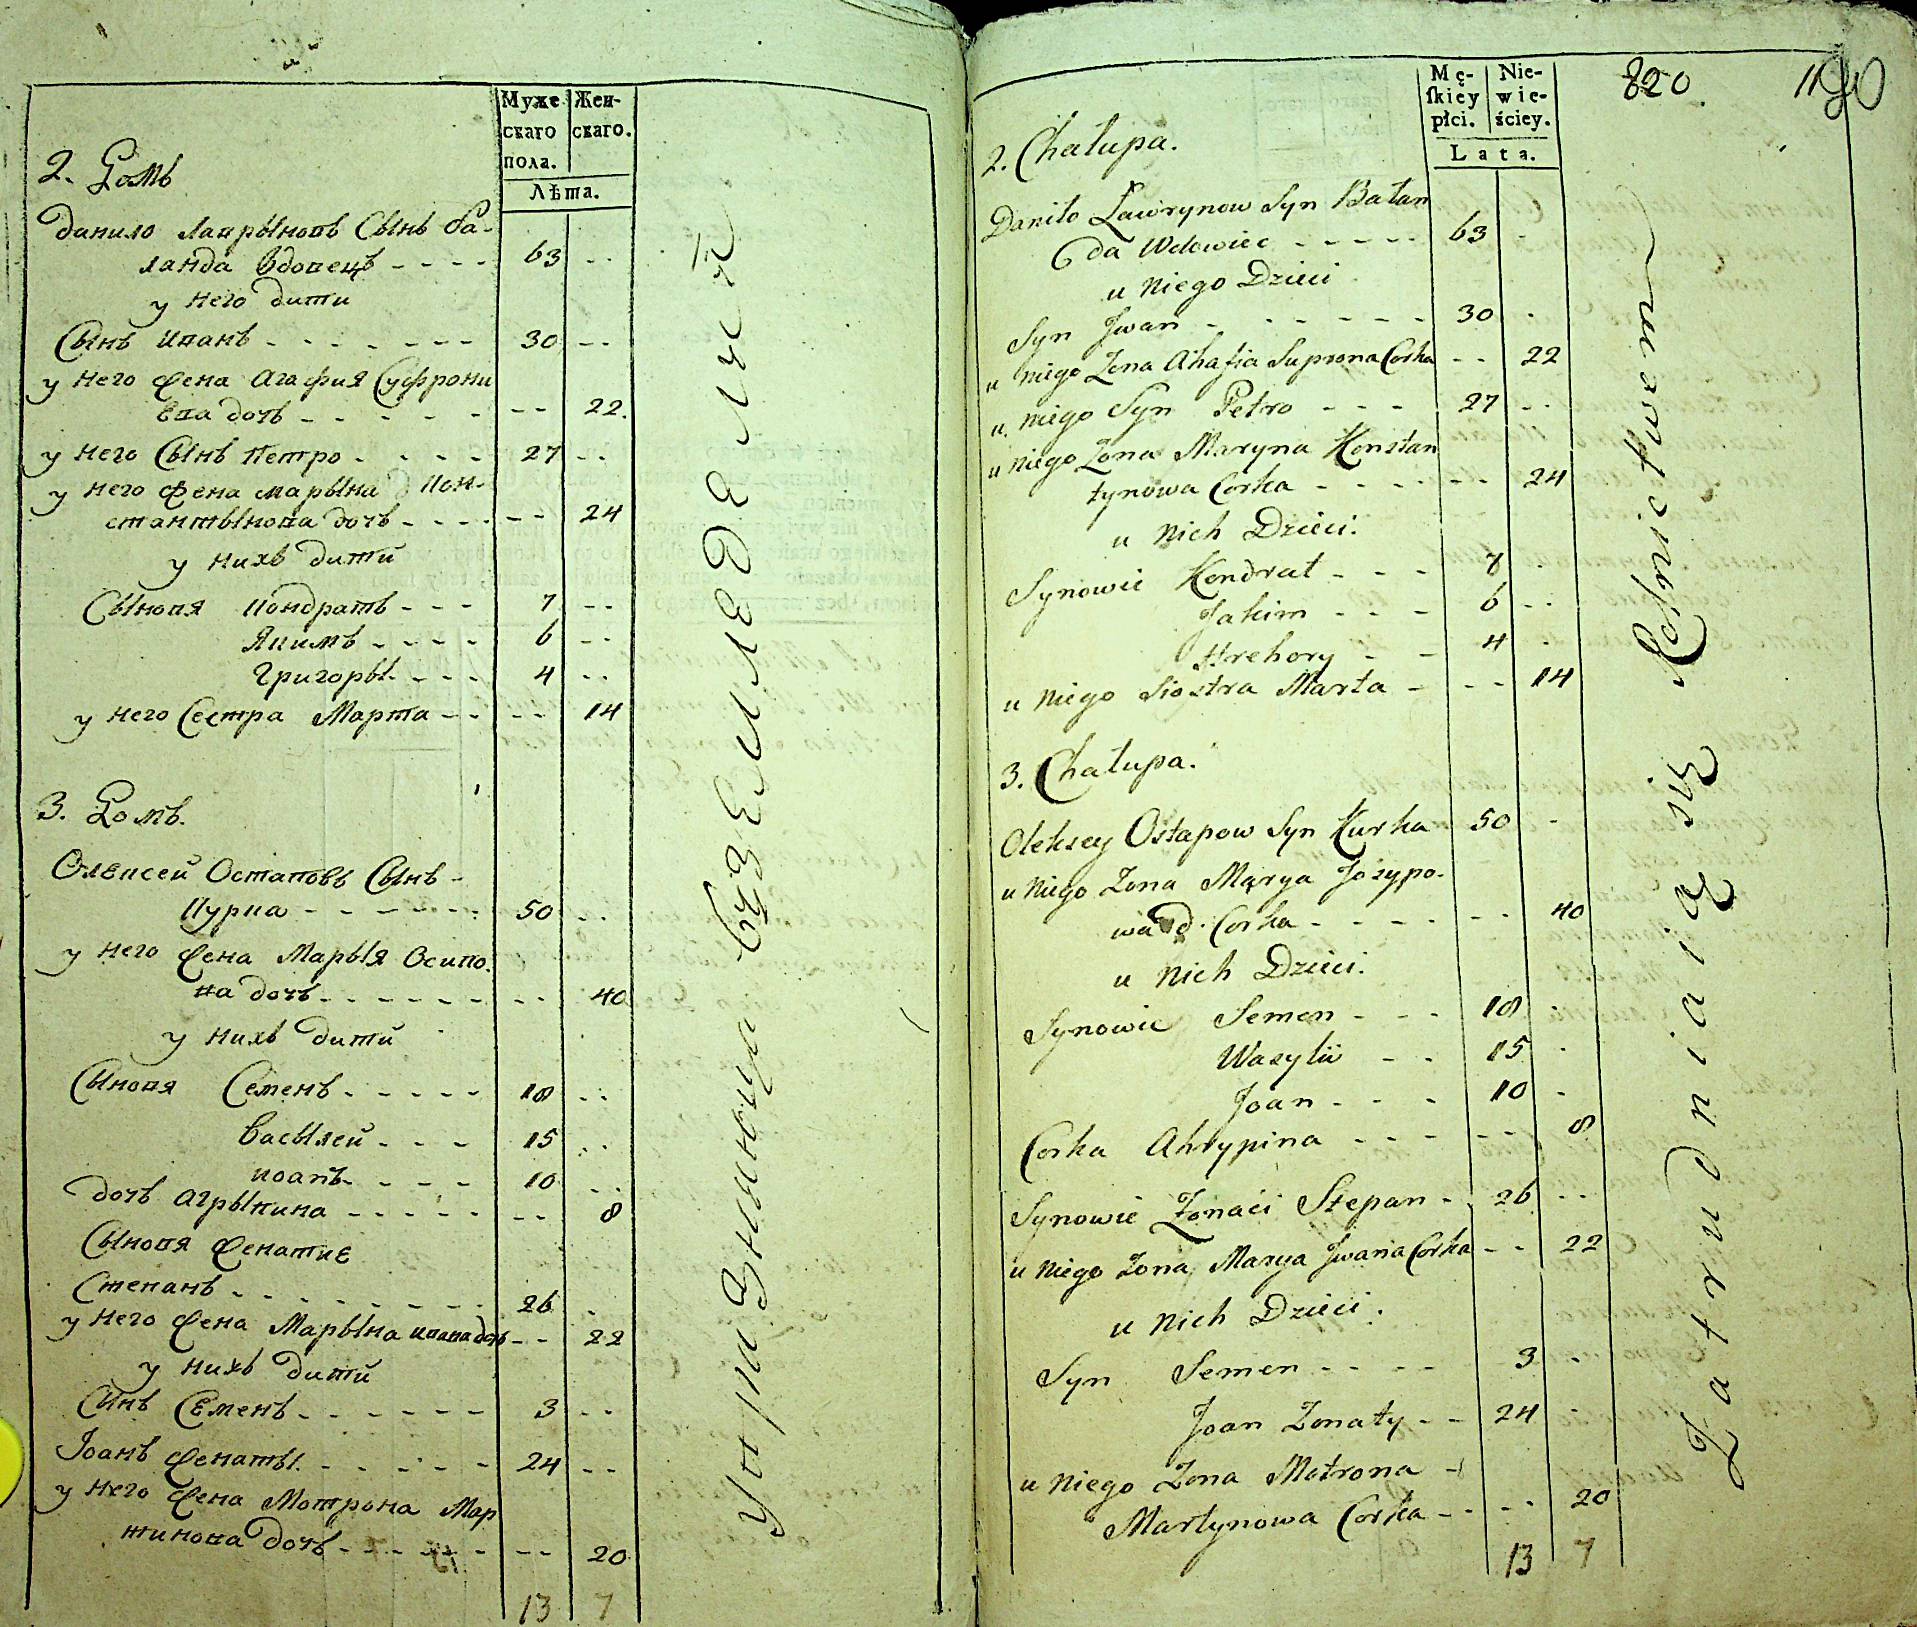 Муже
скаго
пола.
Жен-
скаго.
Лѣта.
2. Домъ
Данило Лаврыновъ Сынъ Ба-
ланда вдовецъ - - - - 63 - -
у него дити
Сынъ Иванъ - - - - - - - 30 - -
у него жена Агафия Суфрони
ева дочь - - - - - - - - 22.
у него Сынъ Петро - - - - - 27 - -
у него жена Марына Кон-
стантынова дочь - - - - - - 24
у нихъ дити
Сыновя Кондратъ - - - 7 - -
Якимъ - - - - 6 - -
Григоры - - - - 4 - -
у него Сестра Марта - - - - 14
3. Домъ.
Олексей Остаповъ Сынъ -
Курка - - - - - - - 50 - -
у него жена Марыя Осипо-
ва дочь - - - - - - - - 40
у нихъ дити
Сыновя Семенъ - - - - - 18 - -
Васылей - - - 15 - -
иоанъ - - - - 10 - -
дочь Агрыпина - - - - - - - 8
Сыновя женатие
Степанъ - - - - - - - - 26 -
у него жена Марына ивана дочь - - 22
у нихъ дити
Сынъ Семенъ - - - - - - 3 - -
Іоанъ женаты - - - - - - 24 - -
у него жена Мотрона Мар
тинова дочь - - - - - - - - 20
13 7
Упражнающа буземледелие
820
1190
Mę-
skiey
płci.
Nie-
wie-
ściey.
Lata.
2. Chałupa.
Daniło Ławrynow Syn Bałan
da Wdowiec - - - - - 63 -
u niego Dzieci
Syn Jwan - - - - - - - 30 -
u niego Zona Ahafia Suprona Corka - - 22
u niego Syn Petro - - - 27 - -
u niego Zona Maryna Konstan
tynowa Corka - - - - - - 24
u nich Dzieci.
Synowie Kondrat - - - 7
Jakim - - - 6 - -
Hrehory - - 4 -
u niego Siostra Marta - - - 14
3. Chałupa.
Oleksey Ostapow Syn Kurka 50 -
u niego Zona Marya Jozypo-
wa Corka - - - - - - 40
u nich Dzieci.
Synowie Semen - - - 18 -
Wasylii - - 15 -
Joan - - - 10 -
Corka Ahrypina - - - - - - 8
Synowie Zonaci Stepan - 26 - -
u niego Zona Marya Jwana Corka - - 22
u nich Dzieci.
Syn Semen - - - - 3 -
Joan Zonaty - - 24 -
u niego Zona Motrona -
Martynowa Corka - - - - 20
13 7
Zatrudniaią się Rolnictwem